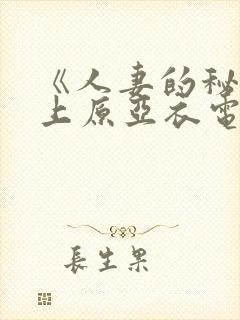 《人妻的秘
上原亞衣電
長生果